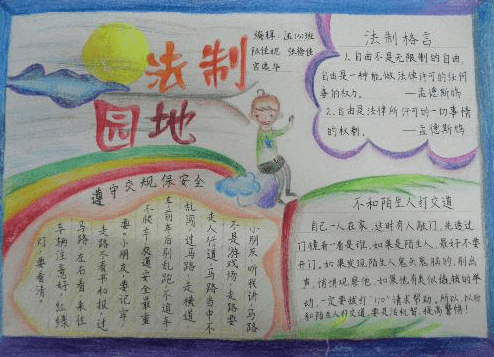 法制
园地
编辑:
法制格言
1.自由不是无限制的自由,
自由是一种能做法律许可的任何
事的权力。 —孟德斯鸠
2.自由是法律所许可的一切事情
的权利。 —孟德斯鸠
遵守交规保安全
小朋友听我讲,马路
不是游戏场,走路要
走人行道,马路当中不
乱闯,过马路,走横道
车前车后别乱跑,不追车
不候车,交通安全最重
要,小朋友,要记牢,
走路不看书和报,过
马路左右看,来往
车辆注意好,红绿
灯,要看清。
不和陌生人打交道
自己一人在家,这时有人敲门,先透过
门镜看一看是谁,如果是陌生人,最好不要
开门。如果发现陌生人鬼头鬼脑的,别出
声,悄悄观察他,如果他有类似撬锁的举
动,一定要拨打"110"请求帮助。所以,以后
和陌生人打交道,要灵活机智,提高警惕!